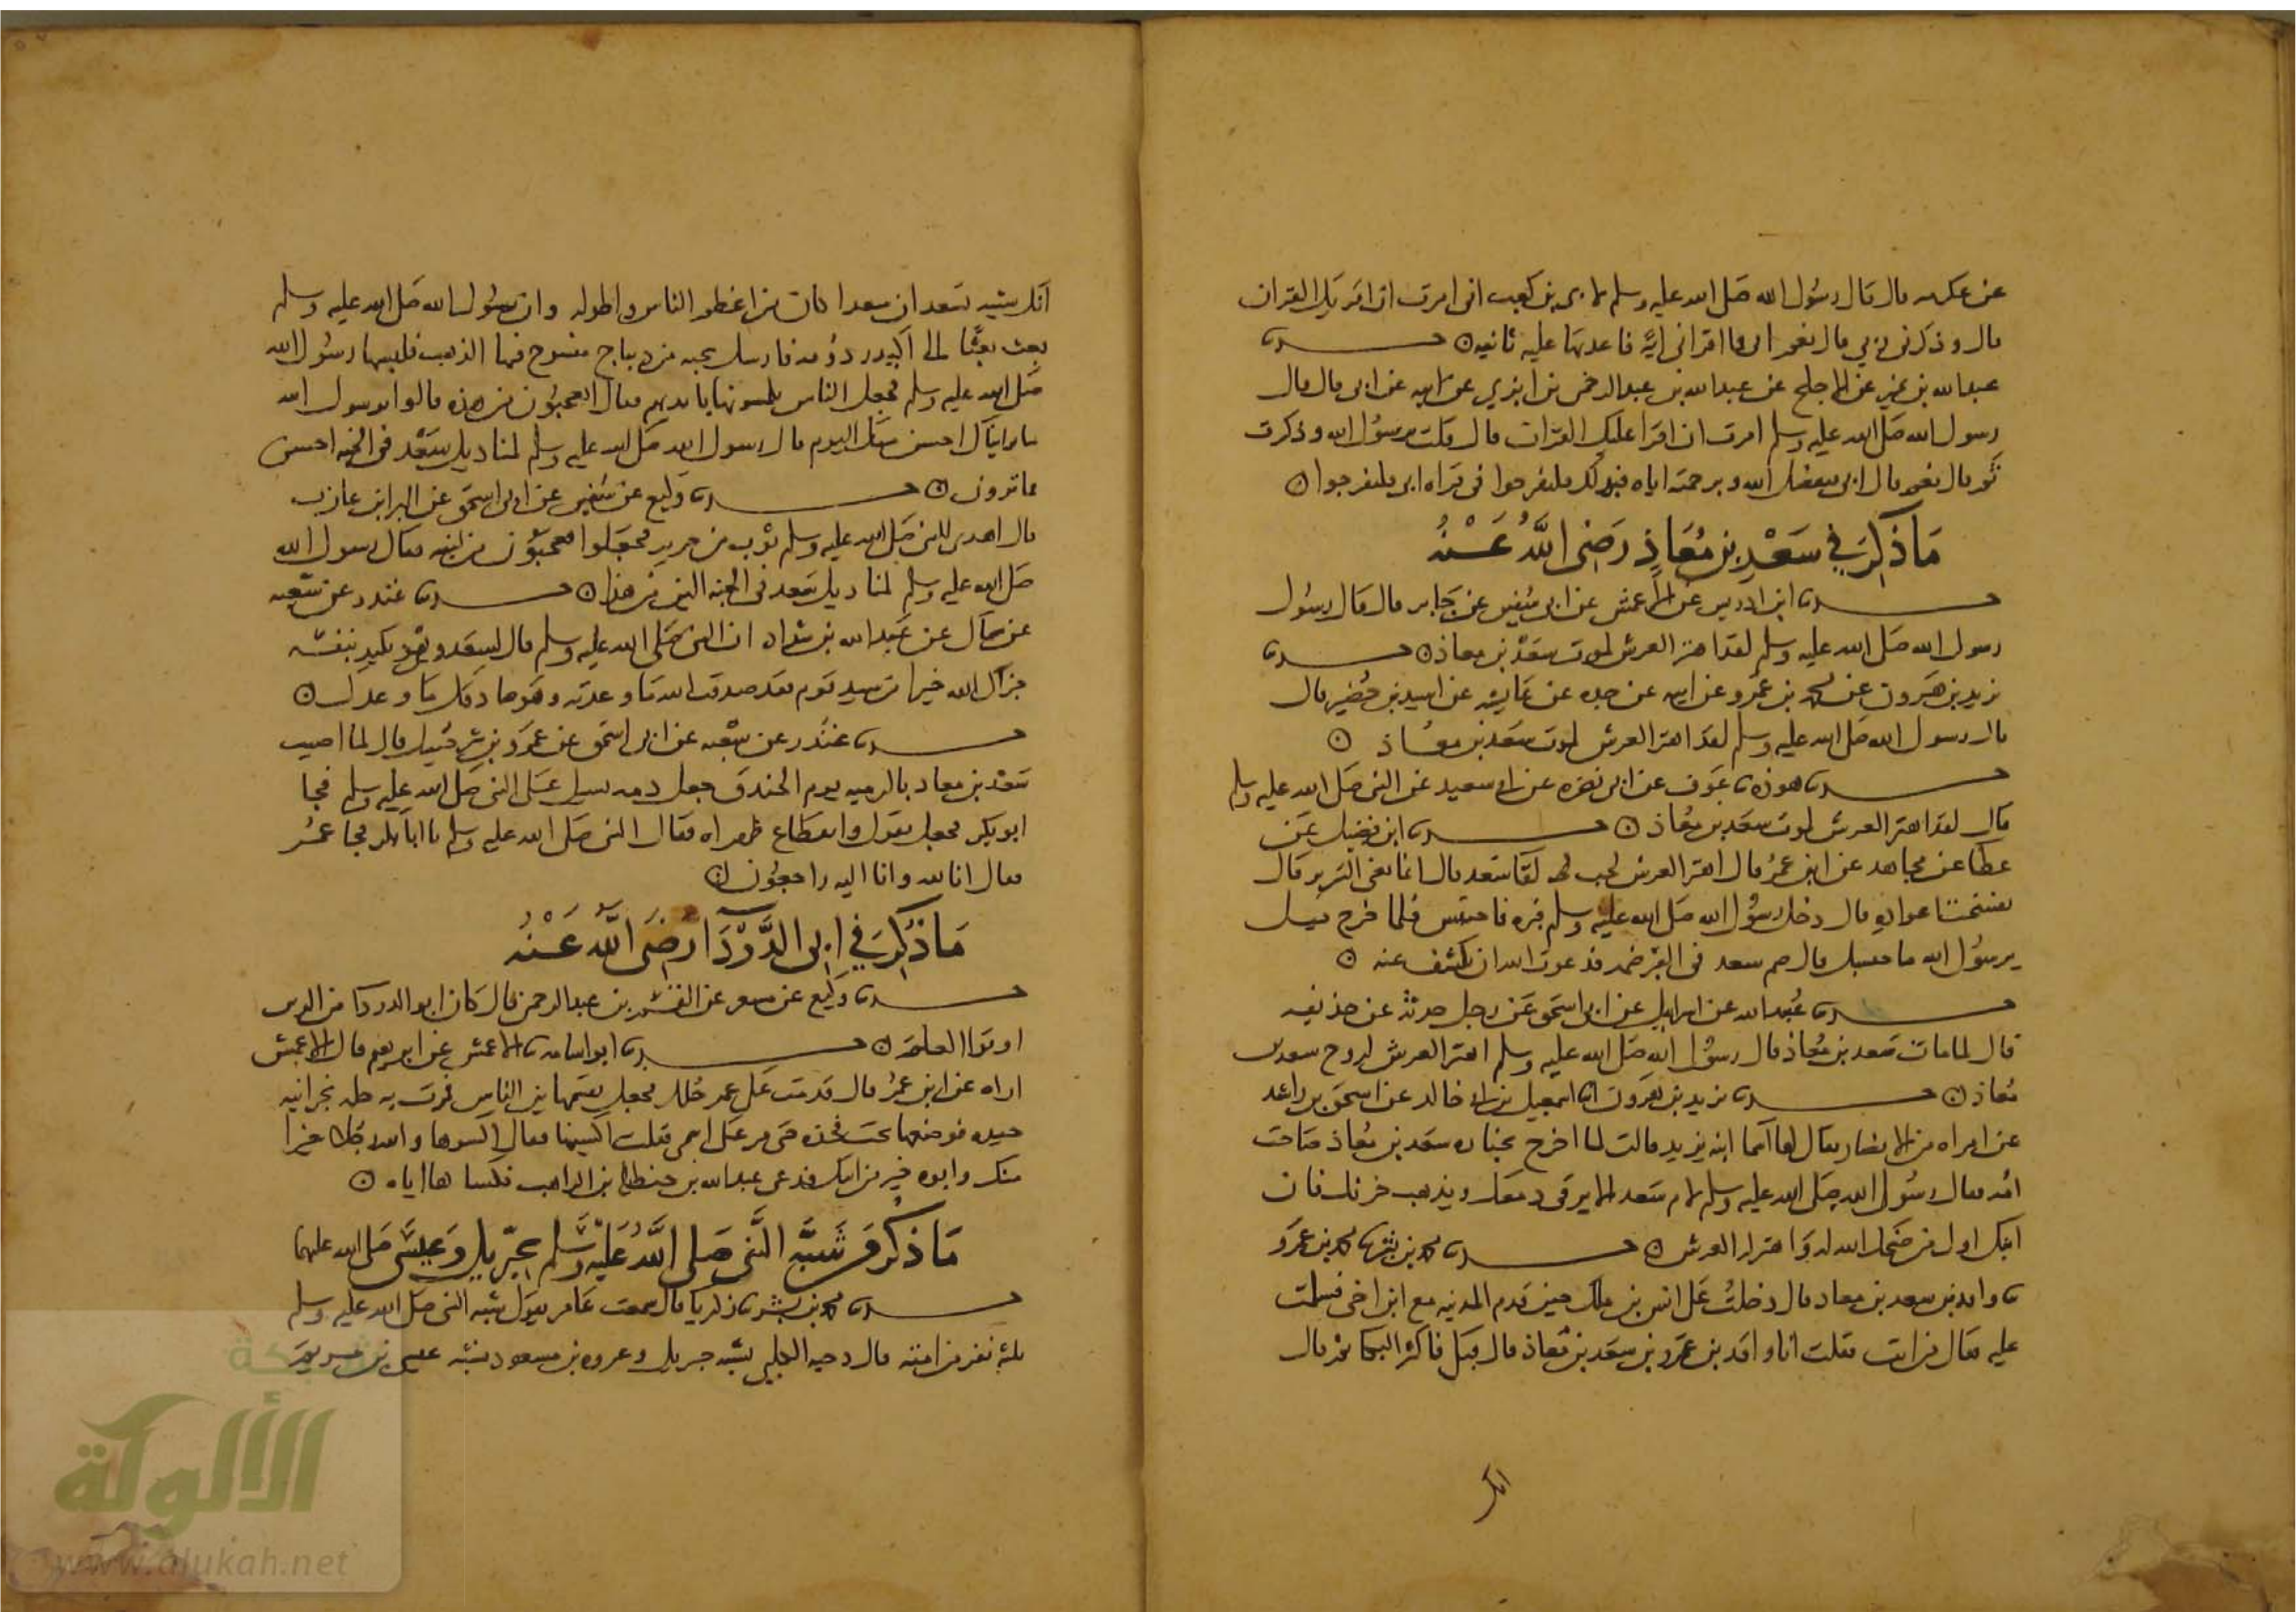 عن عكرمه قال قال رسول الله صلى الله عليه وسلم لابى بن كعب انى امرت ان اقريك القران
قال وذكرنى ربي قال نعم قال ابى فما اقرانى اية فاعدتها عليه ثانيه ۞ حدثنا
عبدالله بن نمير عن الاجلح عن عبدالله بن عبدالرحمن بن ابزي عن ابيه عن ابى قال قال
رسول الله صلى الله عليه وسلم امرت ان اقرا عليك القران قال قلت يرسول الله وذكرت
ثم قال نعم قال ابى بفضل الله وبرحمته اياه فبذلك فلتفرحوا فى قراه ابى فلتفرحوا ۞
مَا ذُكِرَ في سَعْدِ بن مُعَاذٍ رَضِىَ اللَّهُ عَنْهُ
حدثنا ابن ادريس عن الاعمش عن ابى سفين عن جابر قال قال رسول
رسول الله صلى الله عليه وسلم لقد اهتز العرش لموت سعد بن معاذ ۞ حدثنا
يزيد بن هرون عن محمد بن عمرو عن ابيه عن جده عن عايشه عن اسيد بن حضير قال
قال رسول الله صلى الله عليه وسلم لقد اهتز العرش لموت سعد بن معاذ ۞
حدثنا هوذه نا عوف عن ابى نضره عن ابى سعيد عن النبى صلى الله عليه وسلم
قال لقد اهتز العرش لموت سعد بن معاذ ۞ حدثنا ابن فضيل عن
عطا عن مجاهد عن ابن عمر قال اهتز العرش لحب لقا سعد قال انما يعنى السرير قال
تفسخت اعواده قال دخل رسول الله صلى الله عليه وسلم قبره فاحتبس فلما خرج قيل
يرسول الله ما حبسك قال ضم سعد فى القبر ضمه فدعوت الله ان يكشف عنه ۞
حدثنا عبيدالله عن اسرايل عن ابى اسحق عن رجل حدثه عن حذيفه
قال لما مات سعد بن معاذ قال رسول الله صلى الله عليه وسلم اهتز العرش لروح سعد بن
معاذ ۞ حدثنا يزيد بن هرون انا اسمعيل بن ابى خالد عن اسحق بن راشد
عن امراه من الانصار يقال لها اسما ابنه يزيد قالت لما اخرج بجنازه سعد بن معاذ صاحت
امه فقال رسول الله صلى الله عليه وسلم لام سعد الا يرقى دمعك ويذهب حزنك فان
ابنك اول من ضحك الله له واهتز له العرش ۞ حدثنا محمد بن بشر نا محمد بن عمرو
نا واقد بن سعد بن معاذ قال دخلت على انس بن ملك حين قدم المدينه مع ابن اخى فسلمت
عليه فقال من انت فقلت انا واقد بن عمرو بن سعد بن معاذ قال فبكى فاكثر البكا ثم قال
انك
انك شبيه سعد ان سعدا كان من اعظم الناس واطوله وان رسول الله صلى الله عليه وسلم
بعث بعثا الى اكيدر دومه فارسل بجبه من ديباج منسوج فيها الذهب فلبسها رسول الله
صلى الله عليه وسلم فجعل الناس يلمسونها بايديهم فقال اتعجبون من هذه قالوا يرسول الله
ما راينا احسن منك اليوم قال رسول الله صلى الله عليه وسلم لمناديل سعد فى الجنه احسن
مما ترون ۞ حدثنا وكيع عن سفين عن ابى اسحق عن البرا بن عازب
قال اهدى للنبى صلى الله عليه وسلم ثوب من حرير فجعلوا يعجبون من لينه فقال رسول الله
صلى الله عليه وسلم لمناديل سعد فى الجنه الين من هذا ۞ حدثنا غندر عن شعبه
عن سماك عن عبدالله بن شداد ان النبى صلى الله عليه وسلم قال لسعد وهو يكيد بنفسه
جزاك الله خيرا من سيد قوم فقد صدقت الله ما وعدته وهو صادقك ما وعدك ۞
حدثنا غندر عن شعبه عن ابى اسحق عن عمرو بن شرحبيل قال لما اصيب
سعد بن معاد بالرميه يوم الخندق جعل دمه يسيل على النبى صلى الله عليه وسلم فجا
ابو بكر فجعل يقول وا انقطاع ظهراه فقال النبى صلى الله عليه وسلم يا ابا بكر فجا عمر
فقال انا لله وانا اليه راجعون ۞
مَا ذُكِرَ فى ابى الدَّرْدَآ رَضِىَ اللَّهُ عَنْهُ
حدثنا وكيع عن مسعر عن القسم بن عبدالرحمن قال كان ابو الدردا من الذين
اوتوا العلم ۞ حدثنا ابو اسامه نا الاعمش عن ابرهيم قال الاعمش
اراه عن ابن عمر قال قدمت على عمر حلل فجعل يقسمها بين الناس فمرت به حله نجرانيه
جيده فوضعها تحت فخذه حتى مر على اسمى فقلت اكسنيها فقال اكسوها والله رجلا خيرا
منك وابوه خير من ابيك فدعى عبدالله بن حنظله بن الراهب فكساها اياه ۞
مَا ذُكِرَ من شَبَه النَّبى صلى اللَّهُ عَلَيْهِ وَسَلَّم بجبريل وَعِيسَى صلى الله عليهما
حدثنا محمد بن بشر نا زكريا قال سمعت عامر يقول شبه النبى صلى الله عليه وسلم
ثلثه نفر من امته قال دحيه الكلبى يشبه جبريل وعروه بن مسعود يشبه عيسى بن مريم
شبكة
الألوكة
www.alukah.net